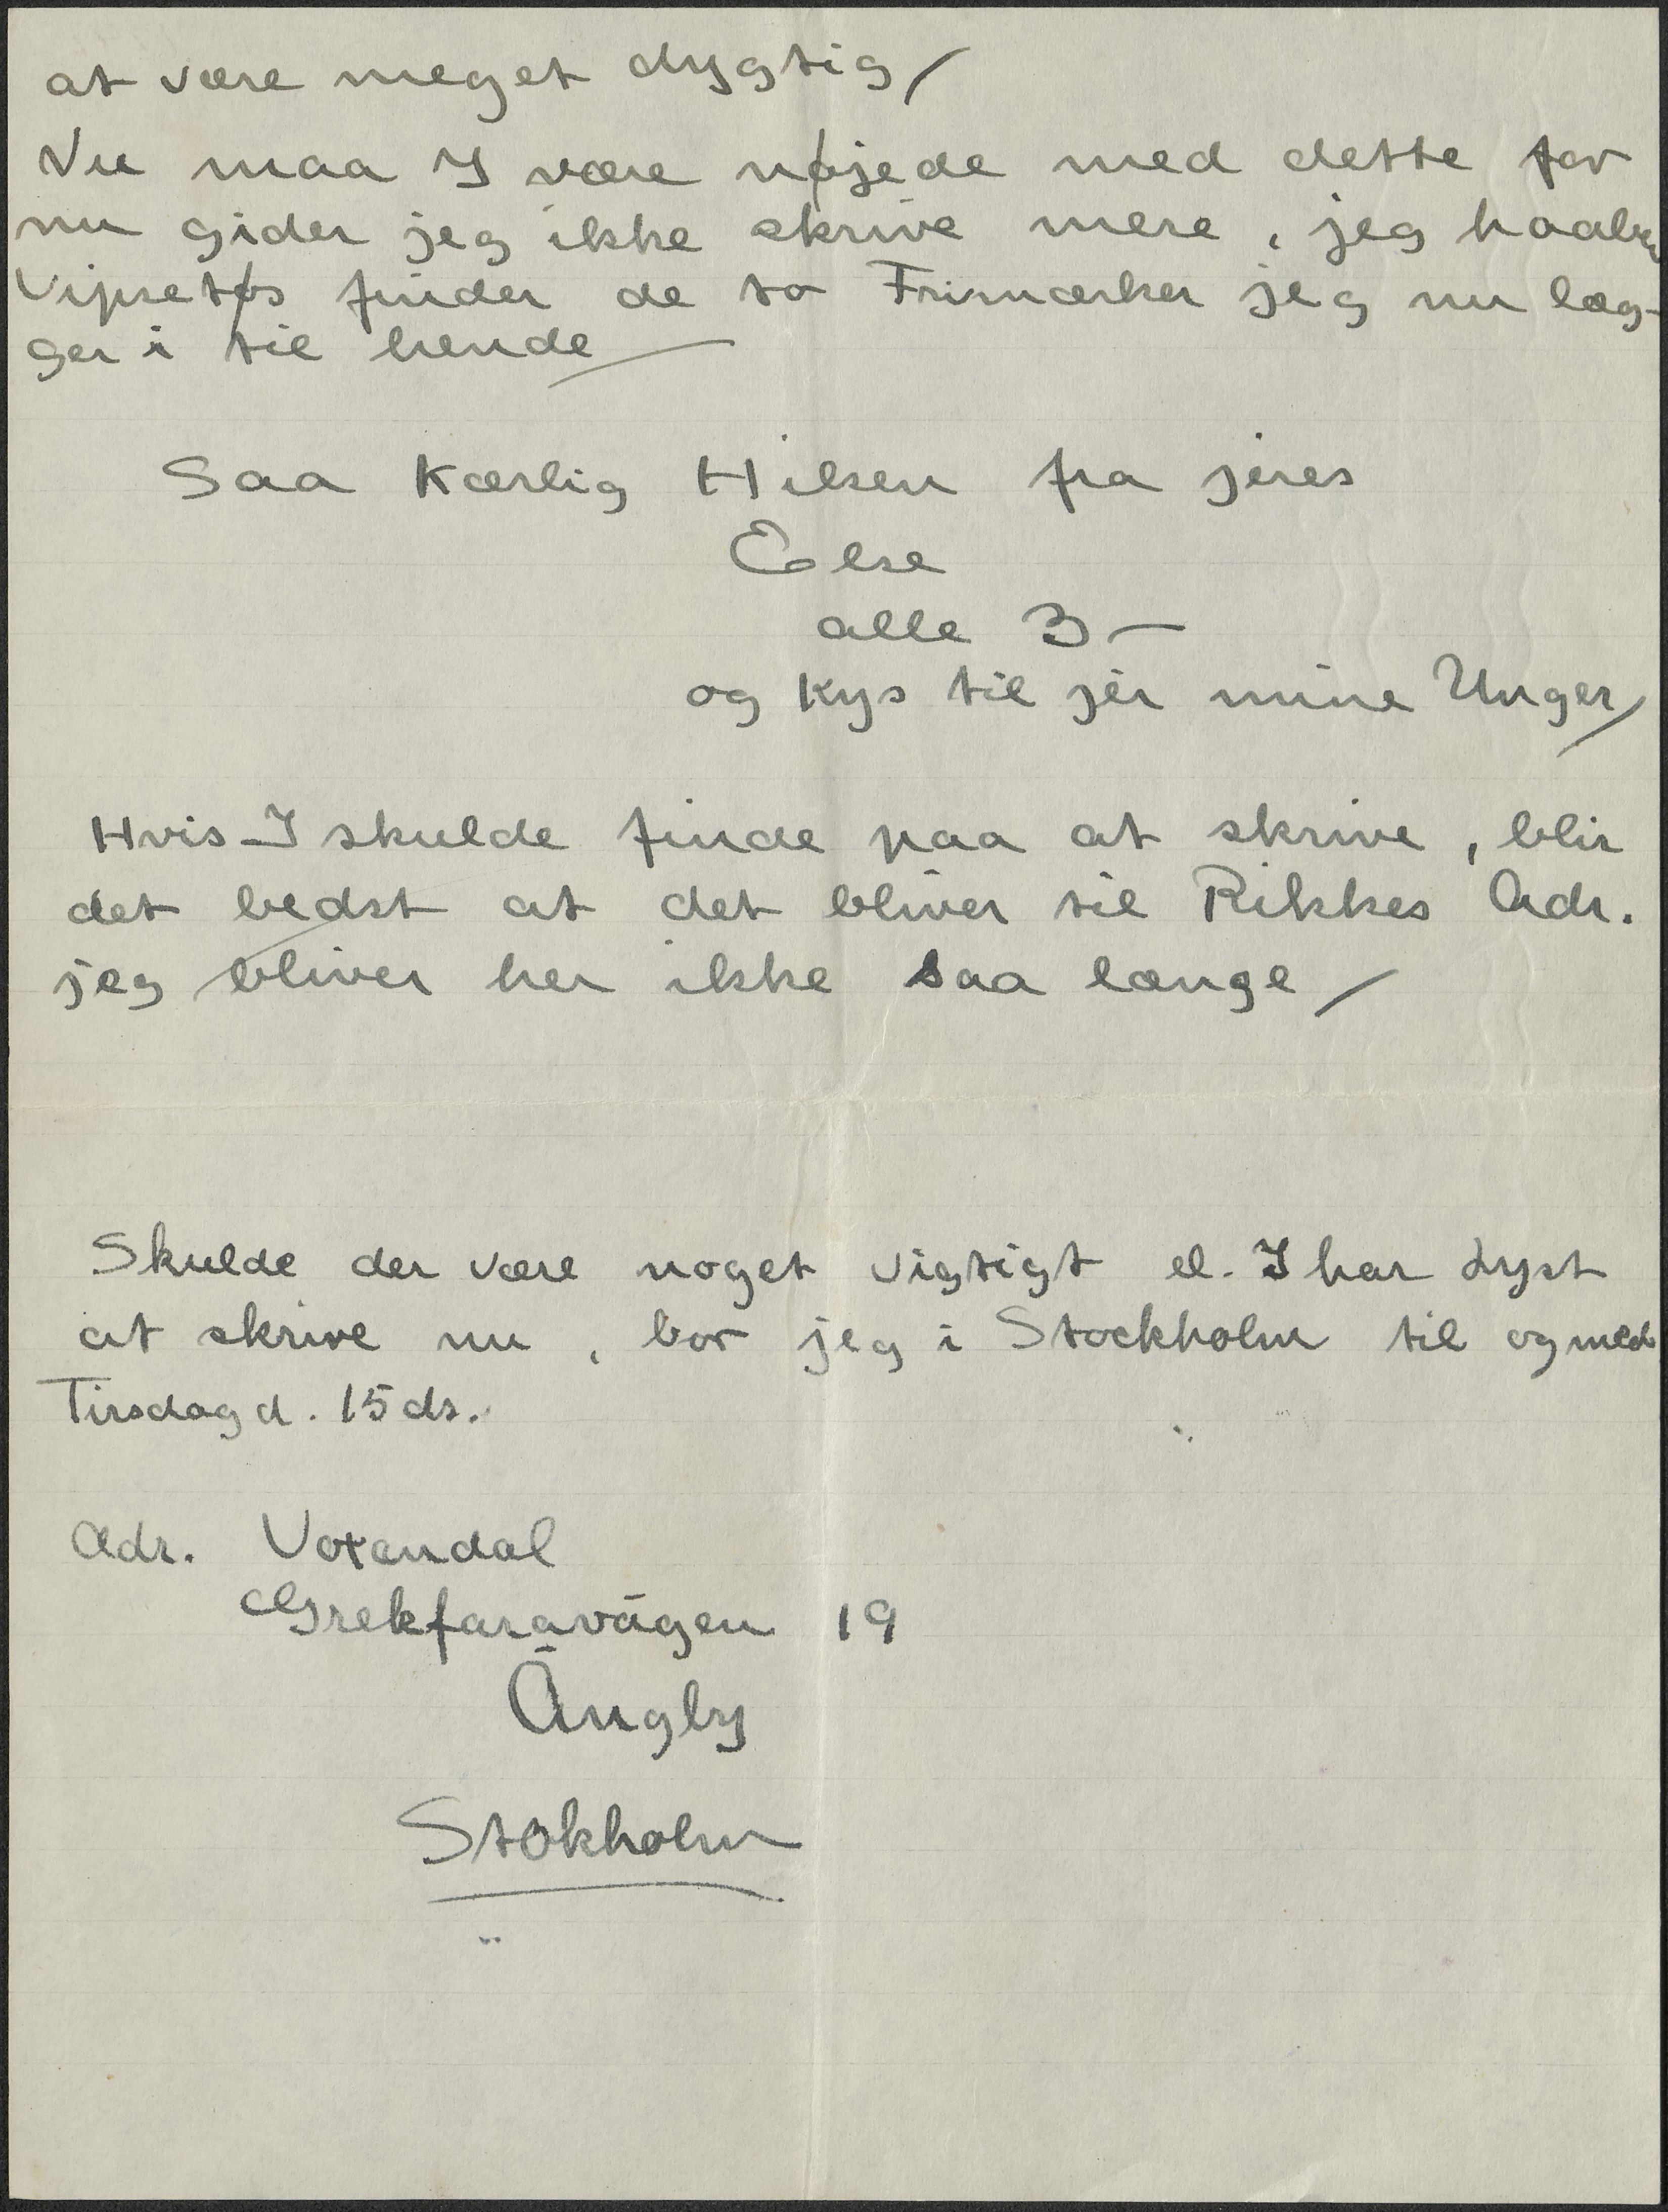 at være meget dygtig/
Nu maa I være nøjede med dette for
nu gider jeg ikke skrive mere, jeg haaber
Vipsetøs finder de to Frimærker jeg nu læg-
ger i til hende
Saa Kærlig Hilsen fra jeres
Else
alle 3 —
og Kys til jer mine Unger/
Hvis I skulde finde paa at skrive, blir
det bedst at det bliver til Rikkes Adr.
jeg bliver her ikke saa længe/
Skulde der være noget vigtigt el. I har Lyst
at skrive nu, bor jeg i Stockholm til og med
Tirsdag d. 15 ds.
Adr. Voxendal
Grekfaravägen 19
Ängby
Stokholm